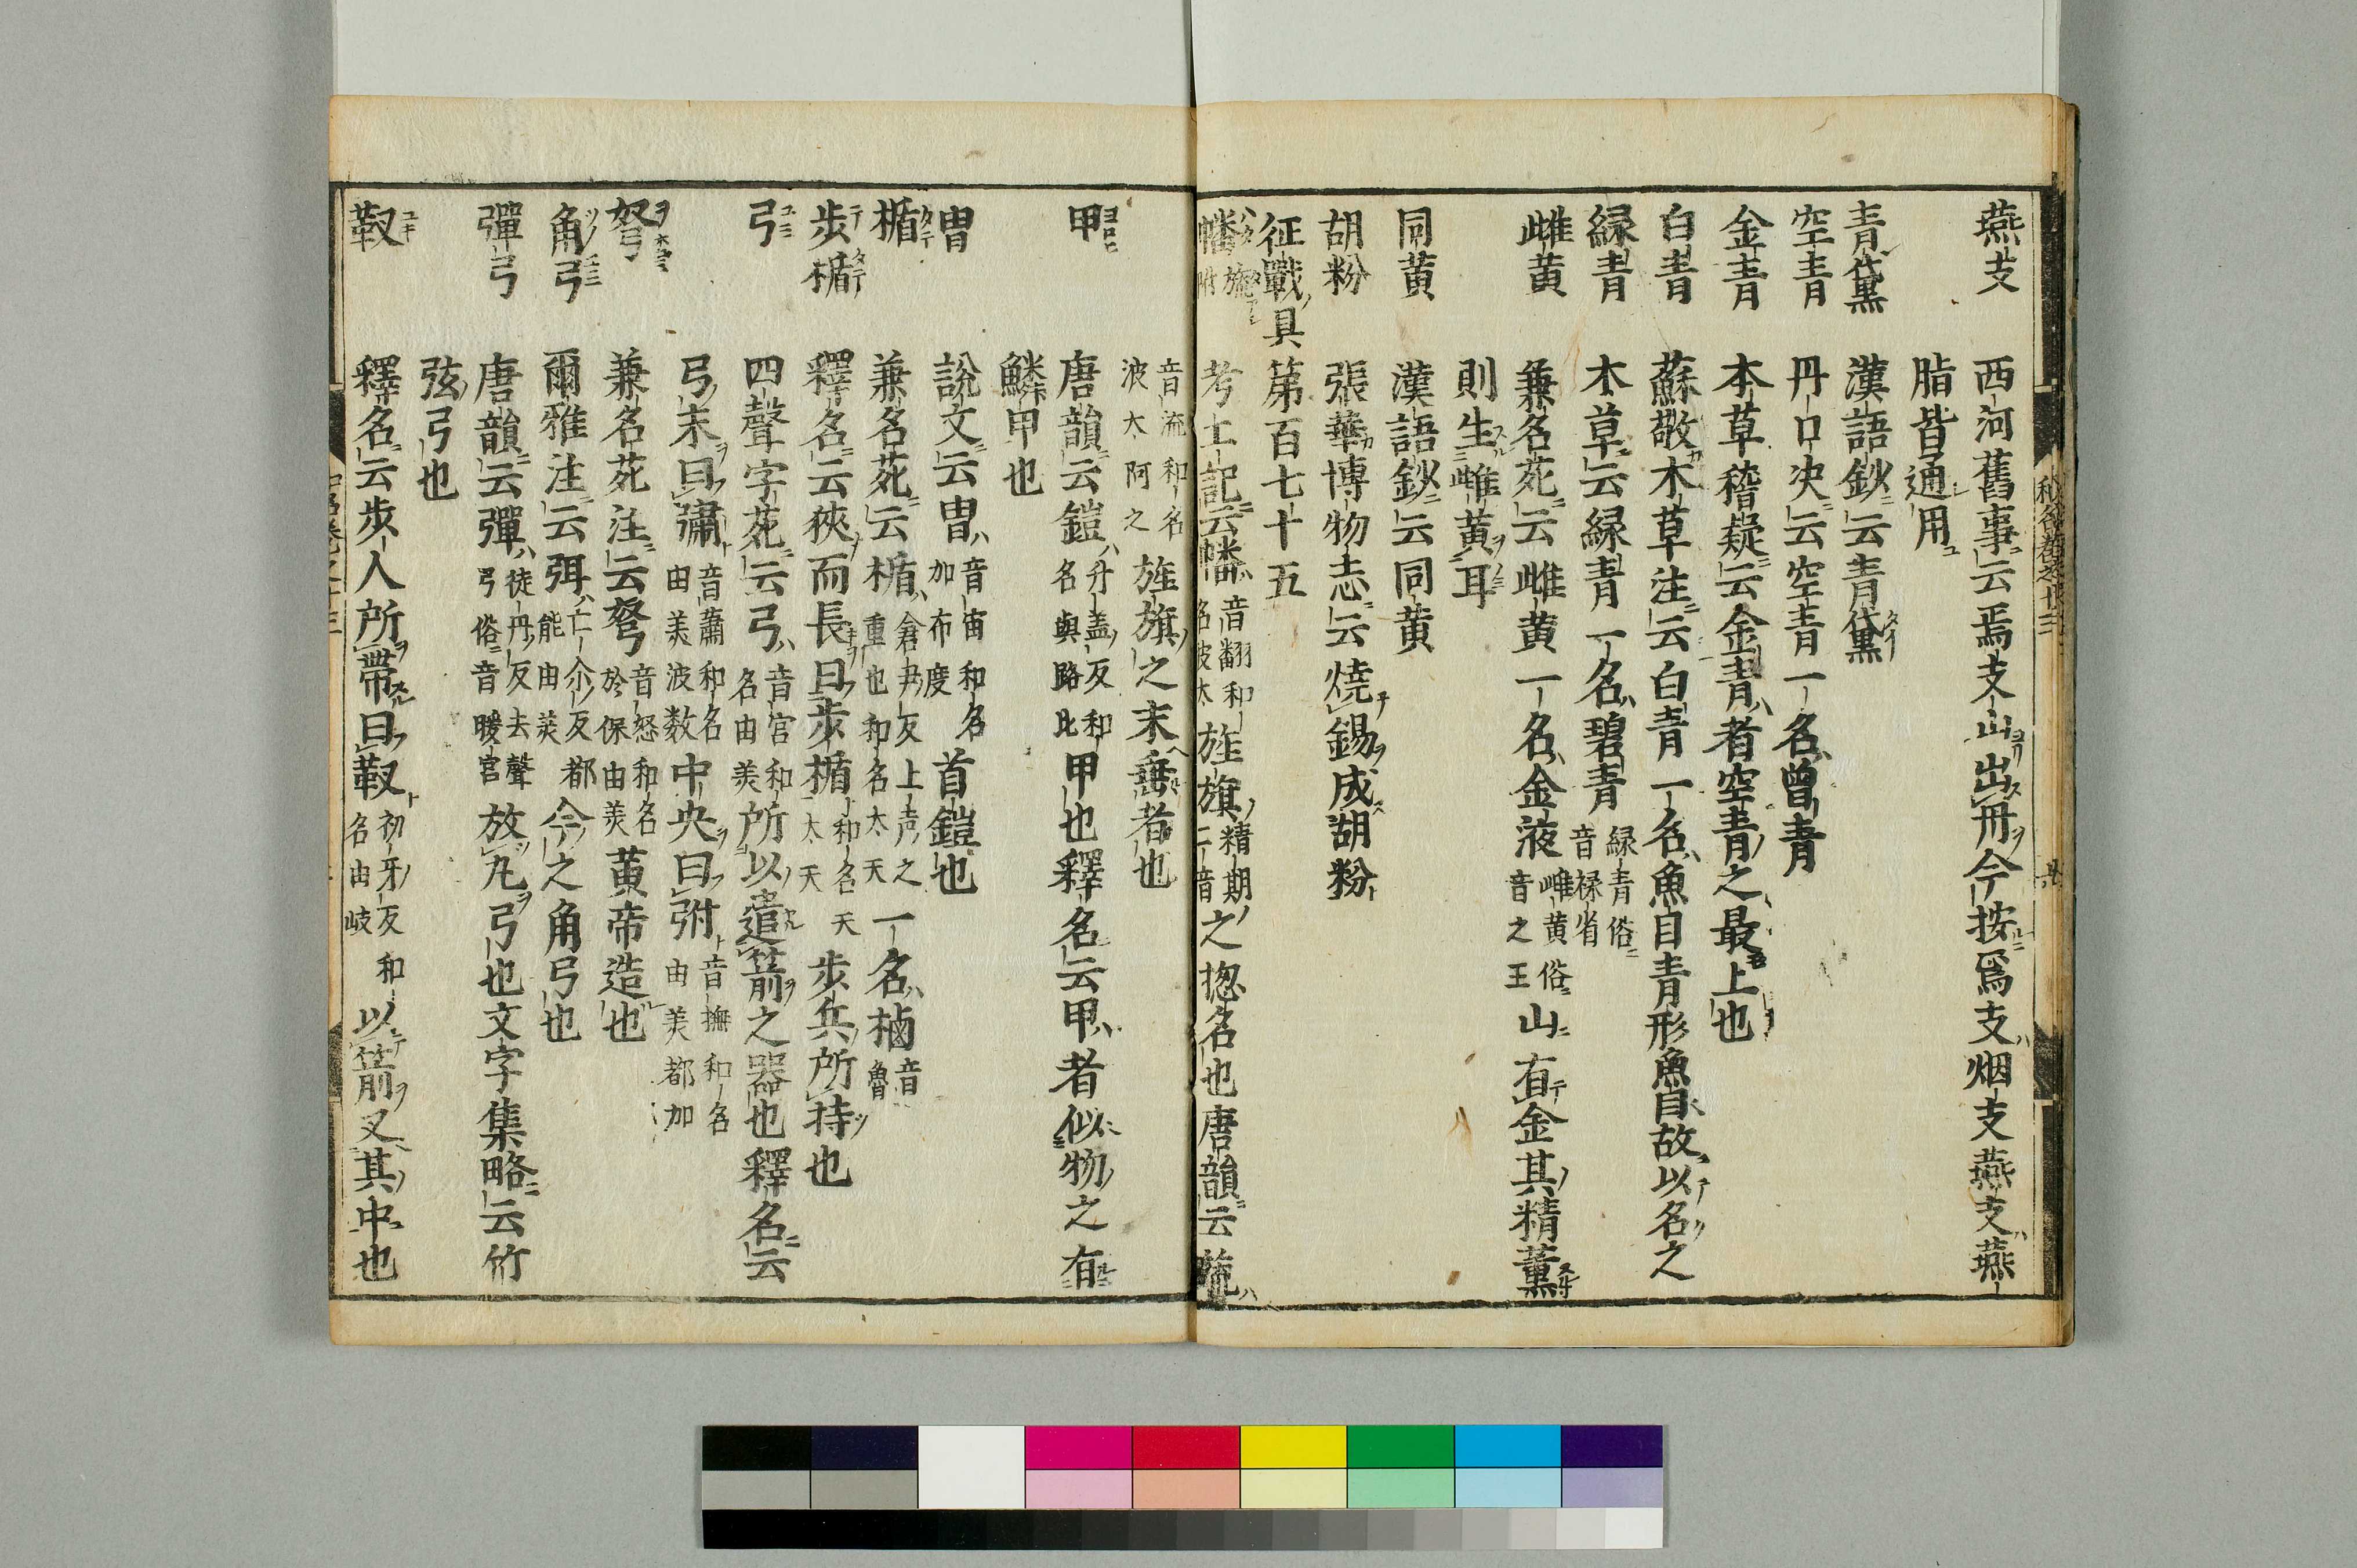 燕支　西河舊事云焉支山出丹今按爲支烟支燕支燕
脂皆通用
青黛　漢語鈔云青黛
空青　丹口决云空青一名曾青
金青　本草稽疑云金青者空青之最上也
白青　蘇敬本草注云白青一名魚目青形魚目故以名之
緑青　本草云緑青一名碧青緑青俗音禄省
雌黄　兼名苑云雌黄一名金液雌黄俗音之王山有金其精薫
則生雌黄耳
同黄　漢語鈔云同黄
胡粉　張華博物志云燒錫成胡粉
征戰具　第百七十五
幡旒附　考工記云幡音翻和名波太旌旗精期二音之揔名也唐韻云旒
音流和名波太阿之旌旗之末垂者也
甲　唐韻云鎧名與路比甲也釋名云甲者似物之有
鱗甲也
冑　說文云冑音宙和名加布度首鎧也
楯　兼名苑云楯食尹反上声之重也和名太天一名樐音魯
歩楯　釋名云狹而長曰歩楯和名天太天歩兵所持也
弓　四聲字苑云弓音宮和名由美所以遣箭之器也釋名云
弓末曰彇音蕭和名由美波数中央曰弣音撫和名由美都加
弩　兼名苑注云弩音怒和名於保由美黄帝造也
角弓　爾雅注云弭亡尒反和名都能由美今之角弓也
彈弓　唐韻云彈徒丹反去聲弓俗音暖宮放丸弓也文字集略云竹
弦弓也
靫　釋名云歩人所帶曰靫初牙反和名由岐以箭叉其中也